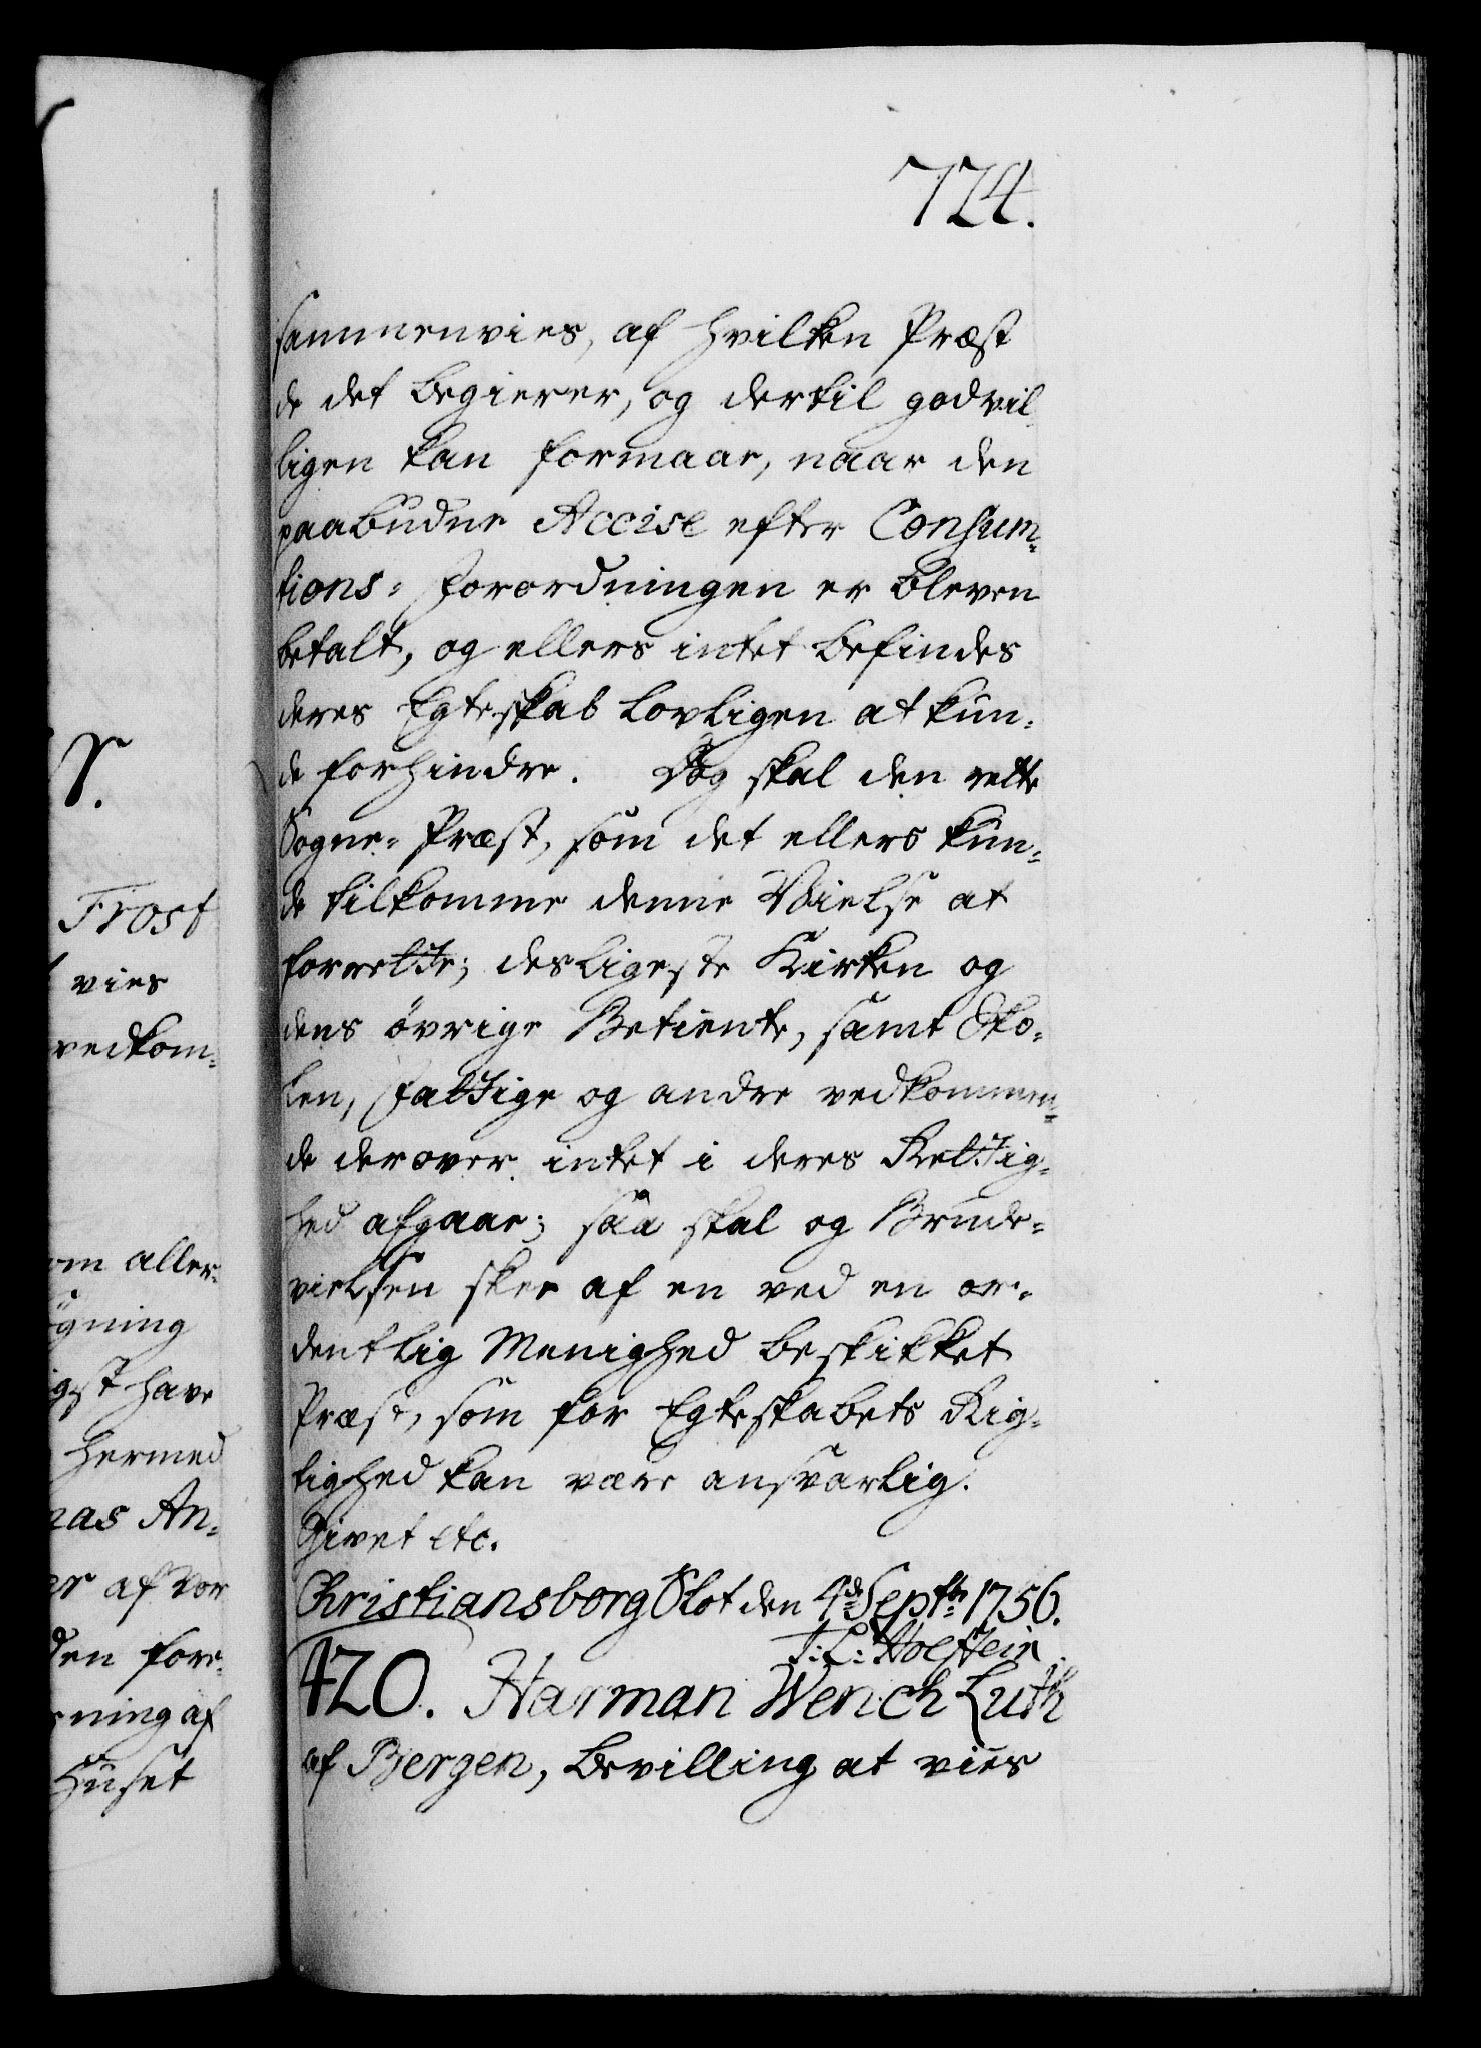 724.
sammenvies, af hvilken Præst
de det begierer, og dertil godvil-
ligen kan formaae, naar den
paabudne Accise efter Consum-
tions-Forordningen er bleven
betalt, og ellers intet befindes
deres Egteskab lovligen at kun-
de forhindre. Dog skal den rette
Sogne-Præst, som det ellers kun-
de tilkomme denne Vielse at
forrette; desligeste Kirken og
dens övrige Betiente, samt Sko-
len, Fattige og andre vedkommen-
de derover intet i deres Rettig-
hed afgaae; saa skal og Brude-
vielsen skee af en ved en or-
dentlig Menighed beskikket
Præst, som for Egteskabets Rig-
tighed kan være ansvarlig.
Givet etc.
Christiansborg Slot den 4de Septbr 1756.
J: L: Holstein.
420. Harman Wench Luth
af Bergen, Bevilling at vies
Frost
vies
vedkom-
om aller-
gning
igst have
hermed
nas An-
er af Vor
den fore-
ning af
Huset